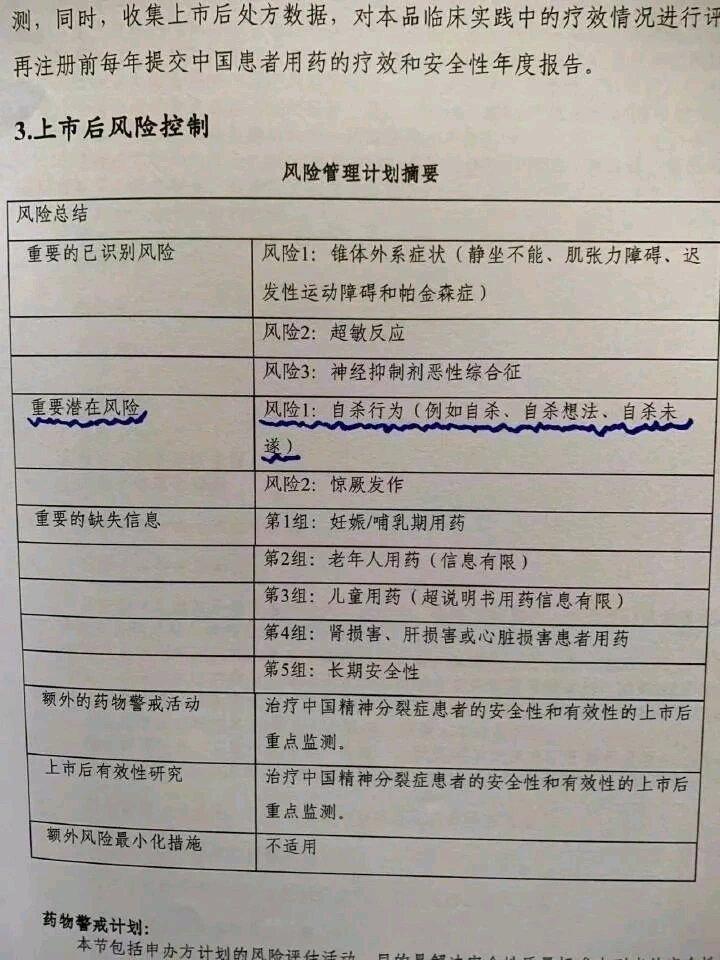 测，同时，收集上市后处方数据，对本品临床实践中的疗效情况进行评
再注册前每年提交中国患者用药的疗效和安全性年度报告。
3.上市后风险控制
风险管理计划摘要
风险总结
重要的已识别风险
风险1：锥体外系症状（静坐不能、肌张力障碍、迟
发性运动障碍和帕金森症）
风险2：超敏反应
风险3：神经抑制剂恶性综合征
重要潜在风险
风险1：自杀行为（例如自杀、自杀想法、自杀未
遂）
风险2：惊厥发作
重要的缺失信息
第1组：妊娠/哺乳期用药
第2组：老年人用药（信息有限）
第3组：儿童用药（超说明书用药信息有限）
第4组：肾损害、肝损害或心脏损害患者用药
第5组：长期安全性
额外的药物警戒活动
治疗中国精神分裂症患者的安全性和有效性的上市后
重点监测。
上市后有效性研究
治疗中国精神分裂症患者的安全性和有效性的上市后
重点监测。
额外风险最小化措施
不适用
药物警戒计划：
本节包括申办方计划的风险评估活动